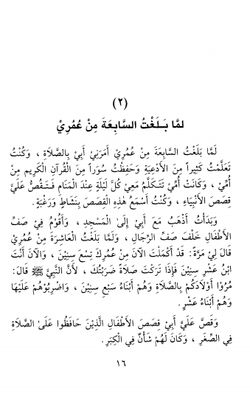 (٢)
لَمَّا بَـلَـغْتُ السَّابِعَةَ مِنْ عُمُرِيْ
لَمَّا بَلَغْتُ السَّابِعَةَ مِنْ عُمُرِيْ أَمَرَنِيْ أَبِيْ بِالصَّلَاةِ ، وَكُنْتُ
تَعَلَّمْتُ كَثِيْراً مِنَ الْأَدْعِيَةِ وَحَفِظْتُ سُوَراً مِنَ الْقُرْآنِ الْكَرِيْمِ مِنْ
أُمِّيْ ، وَكَانَتْ أُمِّيْ تَتَكَلَّمُ مَعِيْ كُلَّ لَيْلَةٍ عِنْدَ الْمَنَامِ فَتَقُصُّ عَلَيَّ
قِصَصَ الْأَنْبِيَاءِ ، وَكُنْتُ أَسْمَعُ هٰذِهِ الْقِصَصَ بِنَشَاطٍ وَرَغْبَةٍ .
وَبَدَأْتُ أَذْهَبُ مَعَ أَبِيْ إِلَىٰ الْمَسْجِدِ ، وَأَقُوْمُ فِيْ صَفِّ
الْأَطْفَالِ خَلْفَ صَفِّ الرِّجَالِ ، وَلَمَّا بَلَغْتُ الْعَاشِرَةَ مِنْ عُمُرِيْ
قَالَ لِيْ مَرَّةً: قَدْ أَكْمَلْتَ الْآنَ مِنْ عُمُرِكَ تِسْعَ سِنِيْنَ ، وَالْآنَ أَنْتَ
ابْنُ عَشْرِ سِنِيْنَ فَإِذَا تَرَكْتَ صَلَاةً ضَرَبْتُكَ ، لِأَنَّ النَّبِيَّ ﷺ قَالَ:
مُرُوْا أَوْلَادَكُمْ بِالصَّلَاةِ وَهُمْ أَبْنَاءُ سَبْعِ سِنِيْنَ ، وَاضْرِبُوْهُمْ عَلَيْهَا
وَهُمْ أَبْنَاءُ عَشْرٍ .
وَقَصَّ عَلَيَّ أَبِيْ قِصَصَ الْأَطْفَالِ الَّذِيْنَ حَافَظُوْا عَلَىٰ الصَّلَاةِ
فِي الصِّغَرِ ، وَكَانَ لَهُمْ شَأْنٌ فِي الْكِبَرِ .
١٦